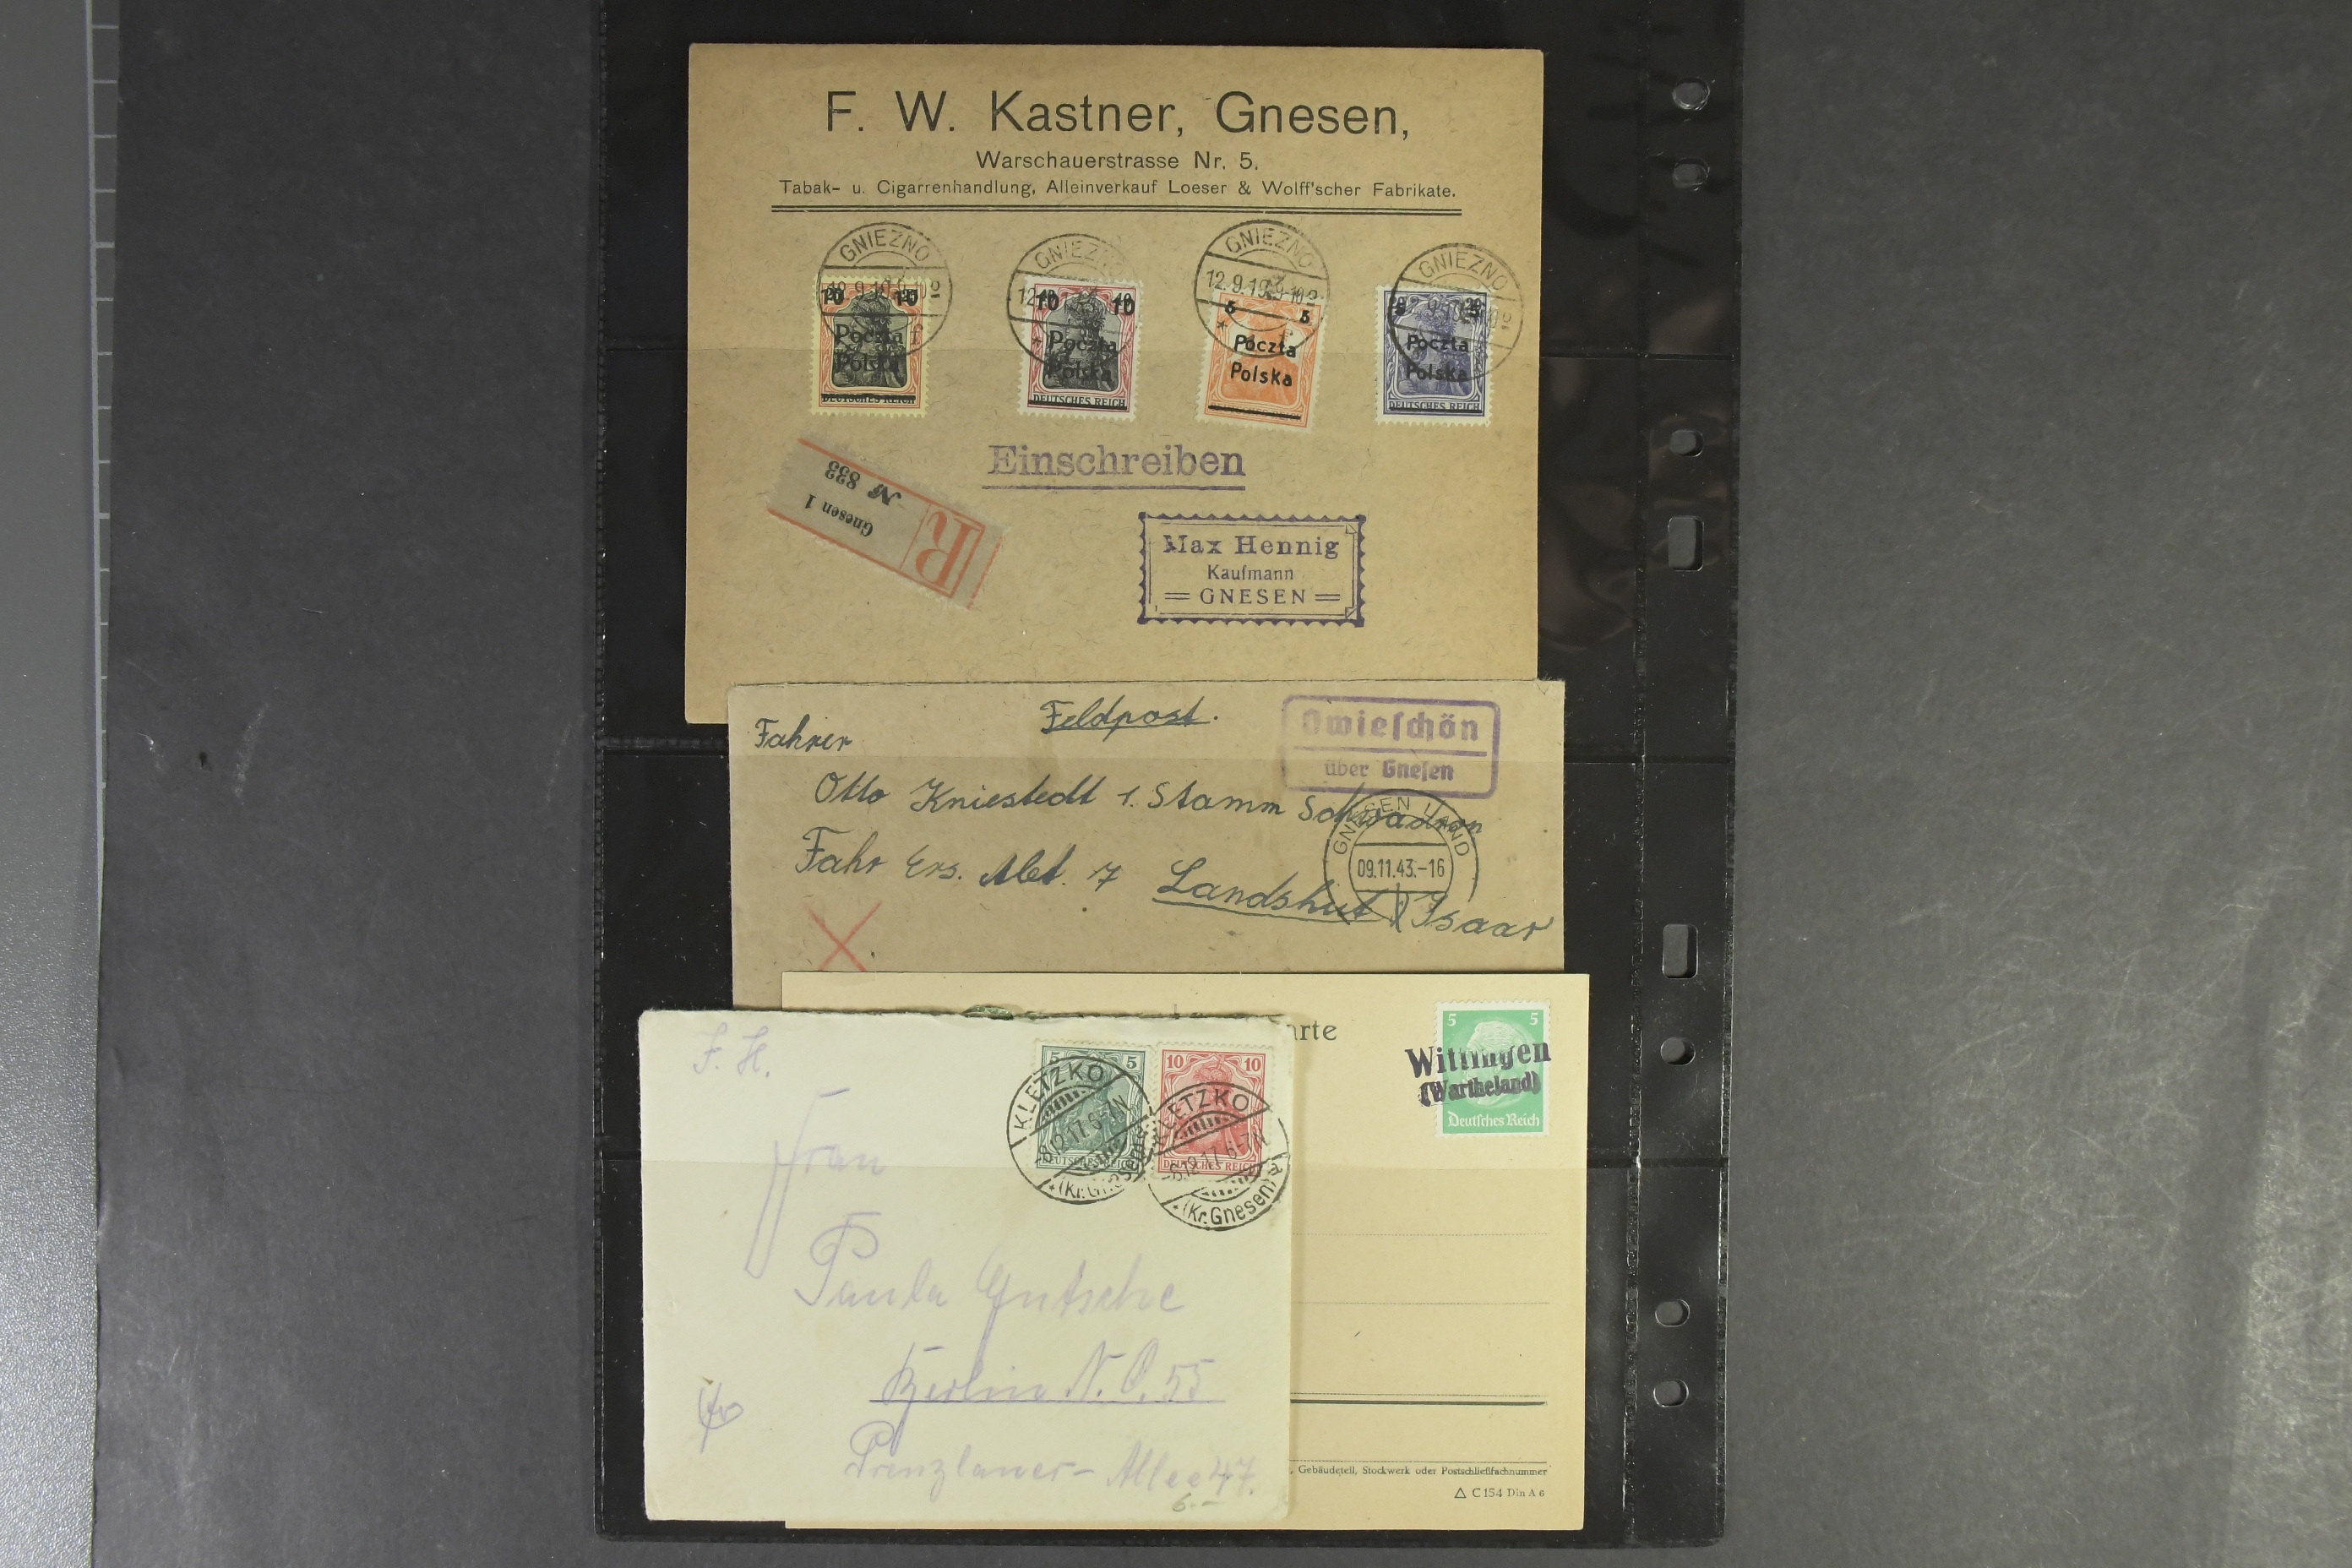 F. W. Kastner, Gnesen,
Warschauerstrasse Nr. 5.
Tabak- u. Cigarrenhandlung, Alleinverkauf Loeser & Wolff'scher Fabrikate.
GNIEZNO
GNIEZNO
GNIEZNO
12.9.19
GNIEZNO
10 10
Poczta
Polska
DEUTSCHES REICH
10 10
Poczta
Polska
DEUTSCHES REICH
5 5
Poczta
Polska
Poczta
Polska
DEUTSCHES REICH
Einschreiben
R
Gnesen 1
№ 833
Max Hennig
Kaufmann
= GNESEN =
Feldpost.
Fahrer
Otto Kniestedt 1. Stamm Schwadron
Fahr Ers. Abt. 7 Landshut / Isaar
Owieschön
über Gnesen
GNESEN LAND
09.11.43.-16
arte
5 5
Wittingen
(Wartheland)
Deutsches Reich
F. H.
5 5
DEUTSCHES REICH
10 10
DEUTSCHES REICH
KLETZKO
KLETZKO
(Kr. Gnesen)
Frau
Paula Gutsche
Berlin N. O. 55
Prenzlauer-Allee 47.
6.-
, Gebäudeteil, Stockwerk oder Postschließfachnummer
△ C 154 Din A 6